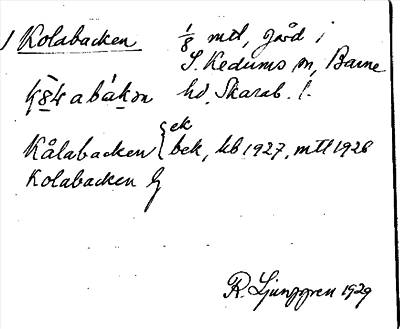 1 Kolabacken 1/8 mtl, gård i
S. Kedums sn, Barne
hd. Skarab. l.
Kålabacken { ek
bek, kb 1927, mtl 1926
Kolabacken G
R. Ljunggren 1929